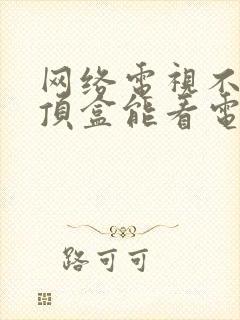 网络電視不
頂盒能看電
路可可